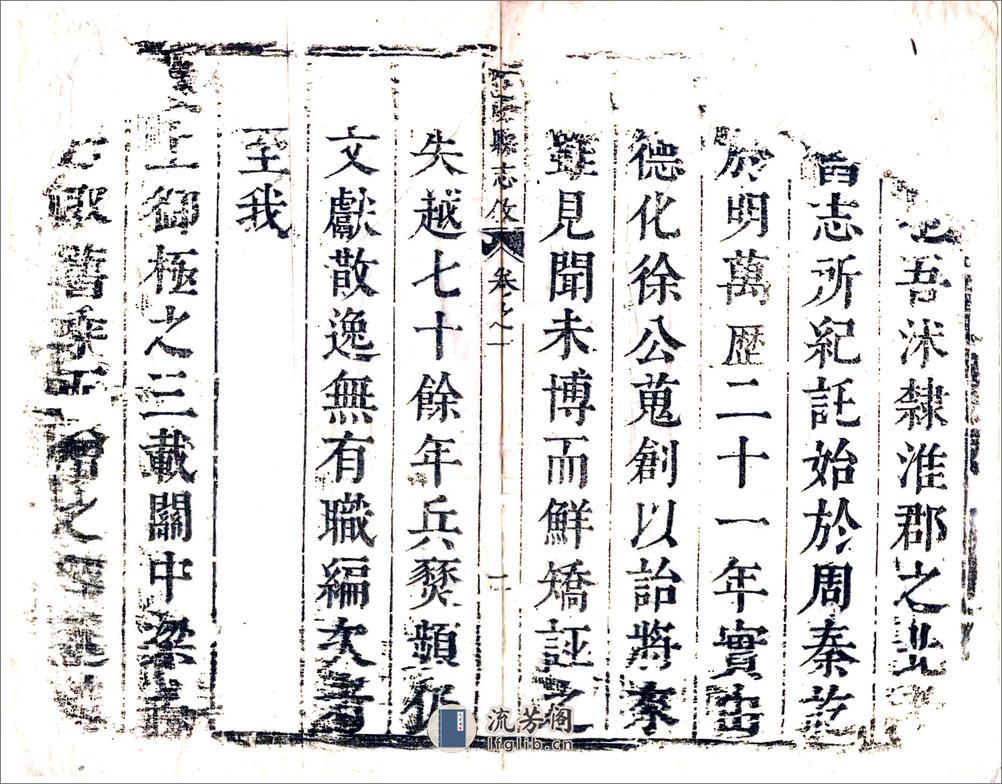 吾沭隸淮郡之北
舊志所紀託始於周秦訖
於明萬歷二十一年實出
德化徐公蒐創以詒將來
雖見聞未博而鮮矯誣之
縣志
卷之一
失越七十餘年兵燹頻仍
文獻散逸無有職編次者
至我
上御極之三載關中梁
舊乘而
之
流芳阁
lfglib.cn